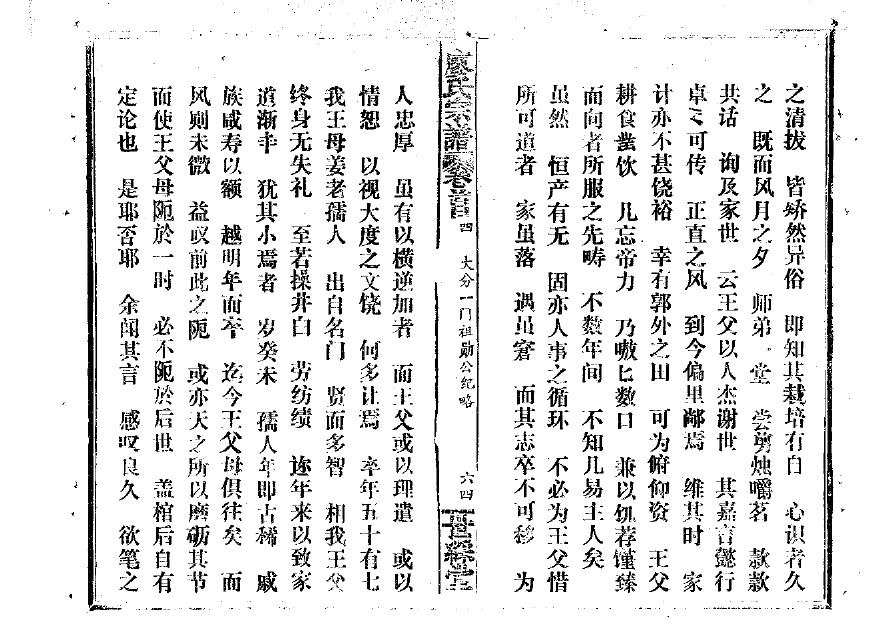 之清拔 皆矫然异俗 即知其栽培有自 心识者久
之 既而风月之夕 师弟一堂 尝剪烛嚼茗 款款
共话 询及家世 云王父以人杰谢世 其嘉言懿行
卓卓可传 正直之风 到今偏里鄰焉 维其时 家
计亦不甚饶裕 幸有郭外之田 可为俯仰资 王父
耕食凿饮 几忘帝力 乃嗷匕数口 兼以饥荐馑臻
而向者所服之先畴 不数年间 不知几易主人矣
虽然 恒产有无 固亦人事之循环 不必为王父惜
所可道者 家虽落 遇虽窘 而其志卒不可移 为
廖氏宗谱 卷首
四 大分一门祖勋公纪略 六四
人忠厚 虽有以横逆加者 而王父或以理遣 或以
情恕 以视大度之文饶 何多让焉 卒年五十有七
我王母姜老孺人 出自名门 贤而多智 相我王父
终身无失礼 至若操井臼 劳纺绩 迩年来以致家
道渐丰 犹其小焉者 岁癸未 孺人年即古稀 戚
族咸寿以额 越明年而卒 迄今王父母俱往矣 而
风则未微 益叹前此之阨 或亦天之所以磨砺其节
而使王父母阨於一时 必不阨於后世 盖棺后自有
定论也 是耶否耶 余闻其言 感叹良久 欲笔之